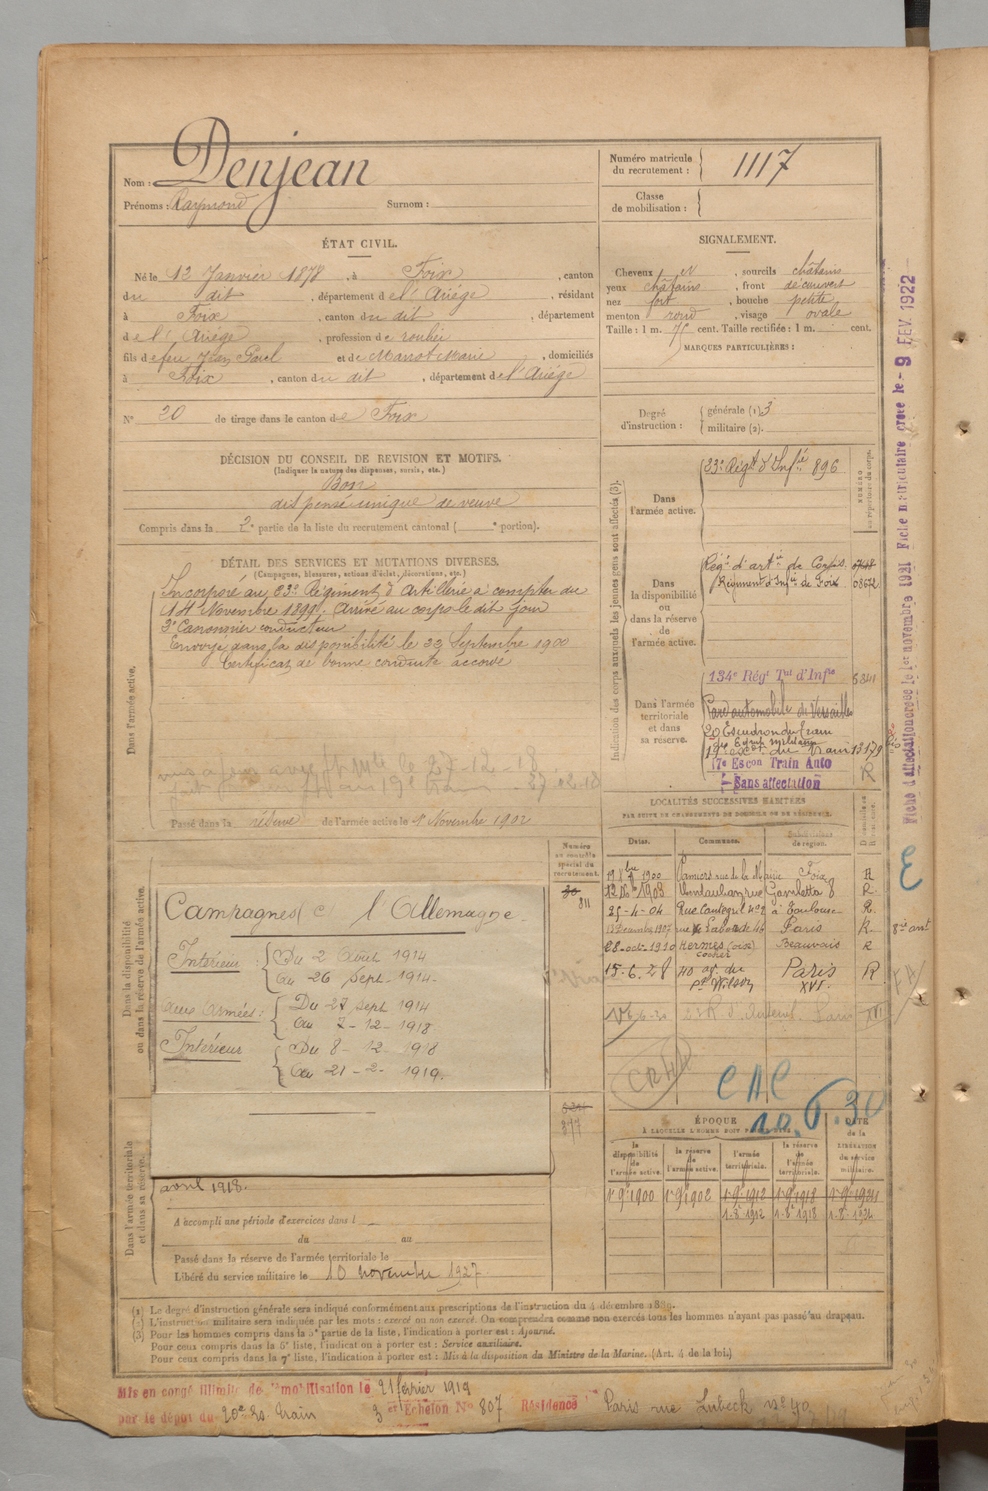 Nom : Denjean
Prénoms : Raymond Surnom :
Numéro matricule du recrutement : 1117
Classe de mobilisation :
ÉTAT CIVIL.
Né le 12 Janvier 1878, à Foix, canton
du dit, département de l'Ariége, résidant
à Foix, canton du dit, département
de l'Ariége, profession de roulier
fils de feu Jean Paul et de Marrot Marie, domiciliés
à Foix, canton du dit, département de l'Ariége
N° 20 de tirage dans le canton de Foix
SIGNALEMENT.
Cheveux et, sourcils châtains
yeux châtains, front découvert
nez fort, bouche petite
menton rond, visage ovale
Taille : 1 m. 75 cent. Taille rectifiée : 1 m. cent.
MARQUES PARTICULIÈRES :
Degré d'instruction : générale (1) 3
militaire (2).
DÉCISION DU CONSEIL DE REVISION ET MOTIFS.
(Indiquer la nature des dispenses, sursis, etc.)
Bon
dispensé unique de veuve
Compris dans la 2e partie de la liste du recrutement cantonal ( e portion).
DÉTAIL DES SERVICES ET MUTATIONS DIVERSES.
(Campagnes, blessures, actions d'éclat, décorations, etc.)
Dans l'armée active.
Incorporé au 23e Régiment d'Artillerie à compter du
14 Novembre 1899. Arrivé au corps le dit jour
2e Canonnier conducteur
Envoyé dans la disponibilité le 22 Septembre 1900
Certificat de bonne conduite accordé
le 27-12-18
au 19e train
Passé dans la réserve de l'armée active le 1er Novembre 1902
Indication des corps auxquels les jeunes gens sont affectés (3).
Dans l'armée active.
23e Régt d'Infie 896
NUMÉRO au répertoire du corps.
Dans la disponibilité ou dans la réserve de l'armée active.
Régt d'artie de Corps.
Régiment d'Infie de Foix 08672
Dans l'armée territoriale et dans sa réserve.
134e Régt Tal d'Infie 5841
Parc automobile de Versailles
20 Escadron du Train
19e Escon du Train 13179
17e Escon Train Auto R
Sans affectation
LOCALITÉS SUCCESSIVES HABITÉES
PAR SUITE DE CHANGEMENTS DE DOMICILE OU DE RÉSIDENCE.
Dates. Communes. Subdivisions de région.
1900 Pamiers rue de la Mairie Foix R
1903 Montauban rue Gambetta 8 R.
25-4-04 Rue Cantegril no 2 à Toulouse R.
1907 rue Laborde 46 Paris R.
28-oct-1910 Hermes (oise) Beauvais R
cocher
15-6-28 40 av. du Pt Wilson Paris XVI. R
6-6-30 23 R. d'Auteuil. Paris XVI
CAC
10.6.30
Numéro au contrôle spécial du recrutement.
811
377
Dans la disponibilité ou dans la réserve de l'armée active.
Campagnes c/ l'Allemagne
Intérieur : Du 2 Août 1914
au 26 Sept. 1914.
aux Armées : Du 27 sept 1914
au 7-12-1918
Intérieur Du 8-12 1918
au 21-2-1919.
Dans l'armée territoriale et dans sa réserve.
avril 1918.
A accompli une période d'exercices dans l
du au
Passé dans la réserve de l'armée territoriale le
Libéré du service militaire le 10 novembre 1927
ÉPOQUE
À LAQUELLE L'HOMME DOIT PASSER DANS
la disponibilité de l'armée active. la réserve de l'armée active. l'armée territoriale. la réserve de l'armée territoriale. DATE de la LIBÉRATION du service militaire.
1er 9bre 1900 1er 9bre 1902 1-9bre 1912 1-9bre 1918
(1) Le degré d'instruction générale sera indiqué conformément aux prescriptions de l'instruction du 4 décembre 1889.
(2) L'instruction militaire sera indiquée par les mots : exercé ou non exercé. On comprendra comme non exercés tous les hommes n'ayant pas passé au drapeau.
(3) Pour les hommes compris dans la 3e partie de la liste, l'indication à porter est : Ajourné.
Pour ceux compris dans la 5e liste, l'indication à porter est : Service auxiliaire.
Pour ceux compris dans la 7e liste, l'indication à porter est : Mis à la disposition du Ministre de la Marine. (Art. 4 de la loi.)
Mis en congé illimité de démobilisation le 21 février 1919
par le dépot du 20e Es. train 3 er Echelon No 807 Résidence Paris rue Lubeck no 40
Fiche d'affectation créée le 1er novembre 1921 Fiche matriculaire créée le - 9 FEV. 1922